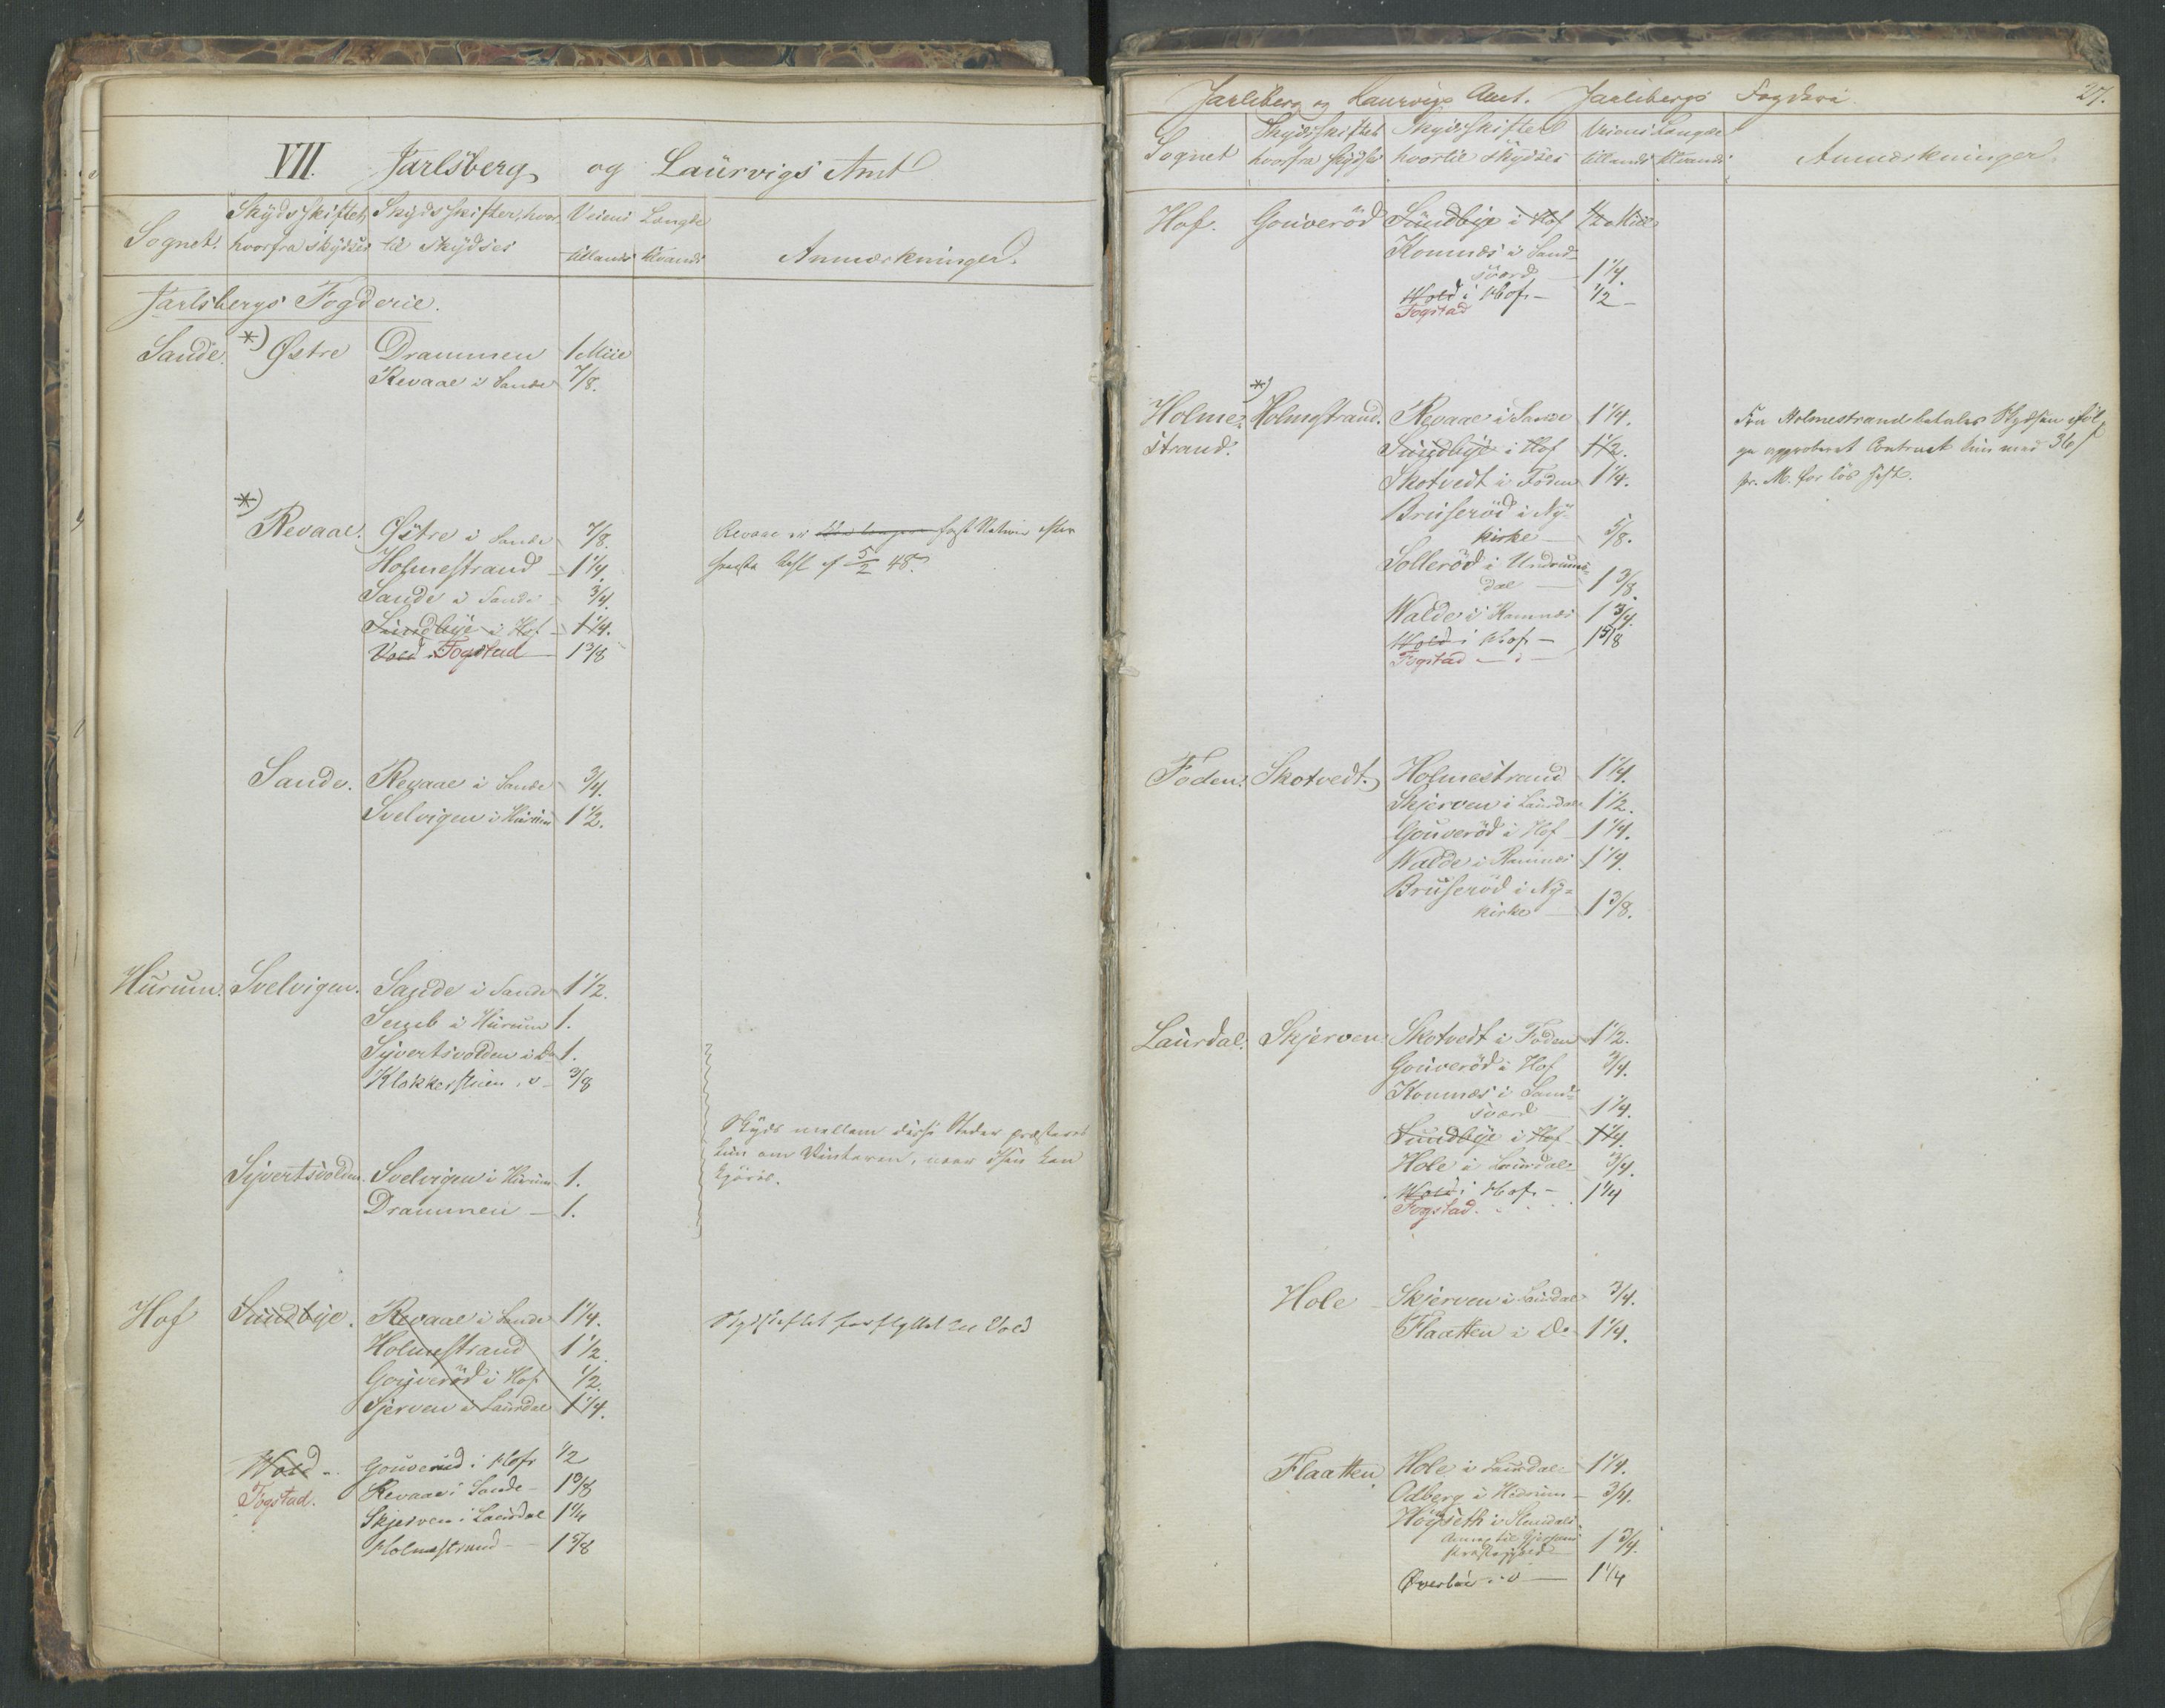 VII. Jarlsberg og Laürvigs Amt
Sognet. Skydsskiftet, hvorfra skydses Skydsskifter, hvortil skydses Veiens Længde tillands tilvands Anmærkninger.
Jarlsbergs Fogderie.
Sande. *) Østre Drammen 1 Miil
Revaae i Sande 7/8.
*) Revaae. Østre i Sande 7/8. Revaae er fast Station efter
Holmestrand 1 1/4. høieste Resl af 5/2 48.
Sande i Sande 3/4.
Sundbye i Hof 1 1/4.
Vold Fogstad 1 3/8
Sande. Revaae i Sande 3/4.
Svelvigen i Hurum 1 1/2.
Hurum. Svelvigen. Sande i Sande 1 1/2.
i Hurum 1.
Syvertsvolden i Do 1.
Klokkerstuen 3/8
Skyds mellem disse Steder præsteres
kun om Vinteren, naar Isen kan
kjøres.
Syvertsvolden. Svelvigen i Hurum 1.
Drammen 1.
Hof Sundbye. Revaae i Sande 1 1/4. Skydsskiftet forflyttet til Vold
Holmestrand 1 1/2.
Gouveröd i Hof 1/2.
Sjerven i Laurdal 1 1/4.
Wold Gouveröd i Hof 1/2
Fogstad. Revaae i Sande 1 3/8
Skjerven i Laurdal 1 1/4
Holmestrand 1 5/8
Jarlsberg og Laurvigs Amt. Jarlsbergs Fogderi 27.
Sognet Skydsskiftet hvorfra skydses Skydsskifter hvortil skydses Veiens Længde tillands tilvands Anmærkninger.
Hof. Gouveröd Sundbye i Hof 1/2 Miil
Komnæs i Sand-
sværd 1 1/4.
Wold i Hof 1/2
Fogstad
*)
Holme- Holmestrand. Revaae i Sande 1 1/4. Fra Holmestrand betales Skydsen iföl-
strand. Sundbye i Hof 1 1/2. ge approberet Contract kun med 36 ß
Skotvedt i Foden 1 1/4. pr. M. for lös Hest.
Bruseröd i Ny-
kirke 5/8.
Solleröd i Undrums-
dal 1 3/8.
Walde i Ramnæs 1 3/4.
Wold i Hof 1 5/8
Fogstad
Foden. Skotvedt. Holmestrand 1 1/4.
Skjerven i Laurdal 1 1/2.
Gouveröd i Hof 1 1/4.
Walde i Ramnæs 1 1/4.
Bruseröd i Ny-
kirke 1 3/8.
Laurdal. Skjerven. Skotvedt i Foden 1 1/2.
Gouveröd i Hof 3/4.
Komnæs i Sand-
sværd 1 1/4.
Sundbye i Hof 1 1/4.
Hole i Laurdal 3/4.
Wold i Hof 1 1/4
Fogstad.
Hole Skjerven i Laurdal 3/4.
Flaatten i Do 1 1/4.
Flaatten. Hole i Laurdal 1 1/4.
Odberg i Hedrum 3/4.
Höyseth i Slemdals
Annex til Gjerpens
Præstegjeld 1 3/4.
1 1/4